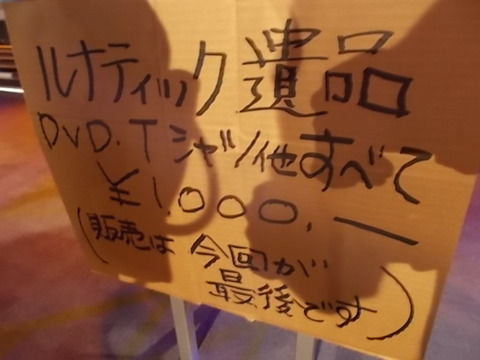 ルナティック遺品
DVD.Tシャツ/他すべて
¥1,000.―
(販売は今回が
最後です)